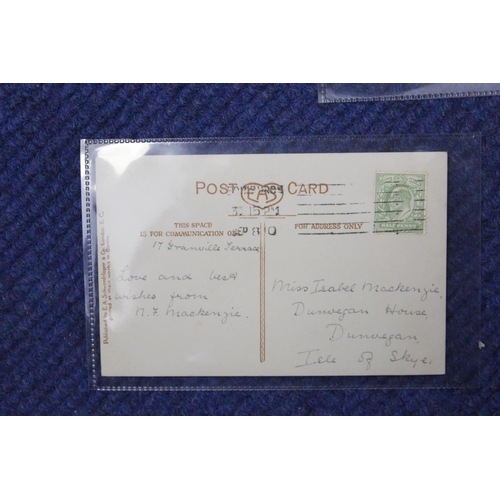 POST CARD
EAS
THIS SPACE
IS FOR COMMUNICATION ONLY
FOR ADDRESS ONLY
3. 15 PM
SP 8 10
HALF PENNY
17 Granville Terrace
Love and best
wishes from
M. F. Mackenzie.
Miss Isabel Mackenzie,
Dunvegan House,
Dunvegan,
Isle of Skye.
Published by E. A. & Co. London, E.C.